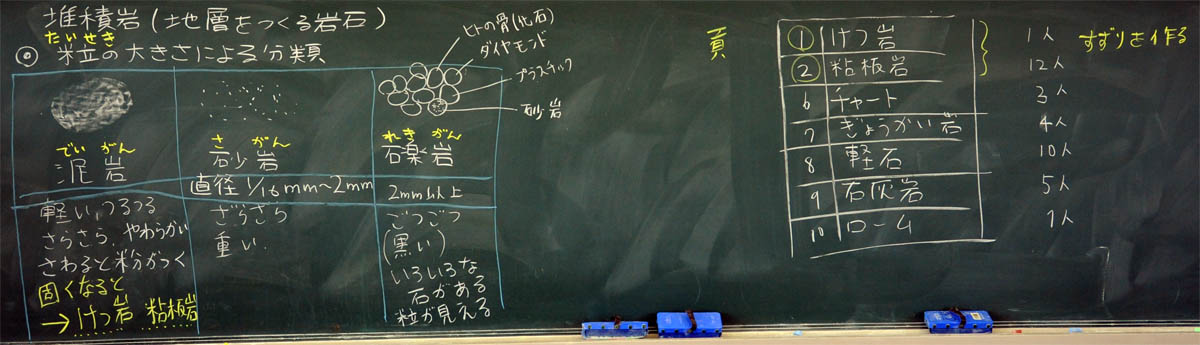 堆積岩(地層をつくる岩石)
たいせき
◎ 粒の大きさによる分類
ヒトの骨(化石)
ダイヤモンド
プラスチック
砂岩
でい がん
泥岩
さ がん
砂岩
れき がん
礫岩
直径 1/16mm~2mm
2mm以上
軽い,つるつる
さらさら,やわらかい
さわると粉がつく
固くなると
→けつ岩 粘板岩
ざらざら
重い.
ごつごつ
(黒い)
いろいろな
石がある
粒が見える
頁
① けつ岩 1人 すずりを作る
② 粘板岩 12人
6 チャート 3人
7 ぎょうかい岩 4人
8 軽石 10人
9 石灰岩 5人
10 ローム 1人